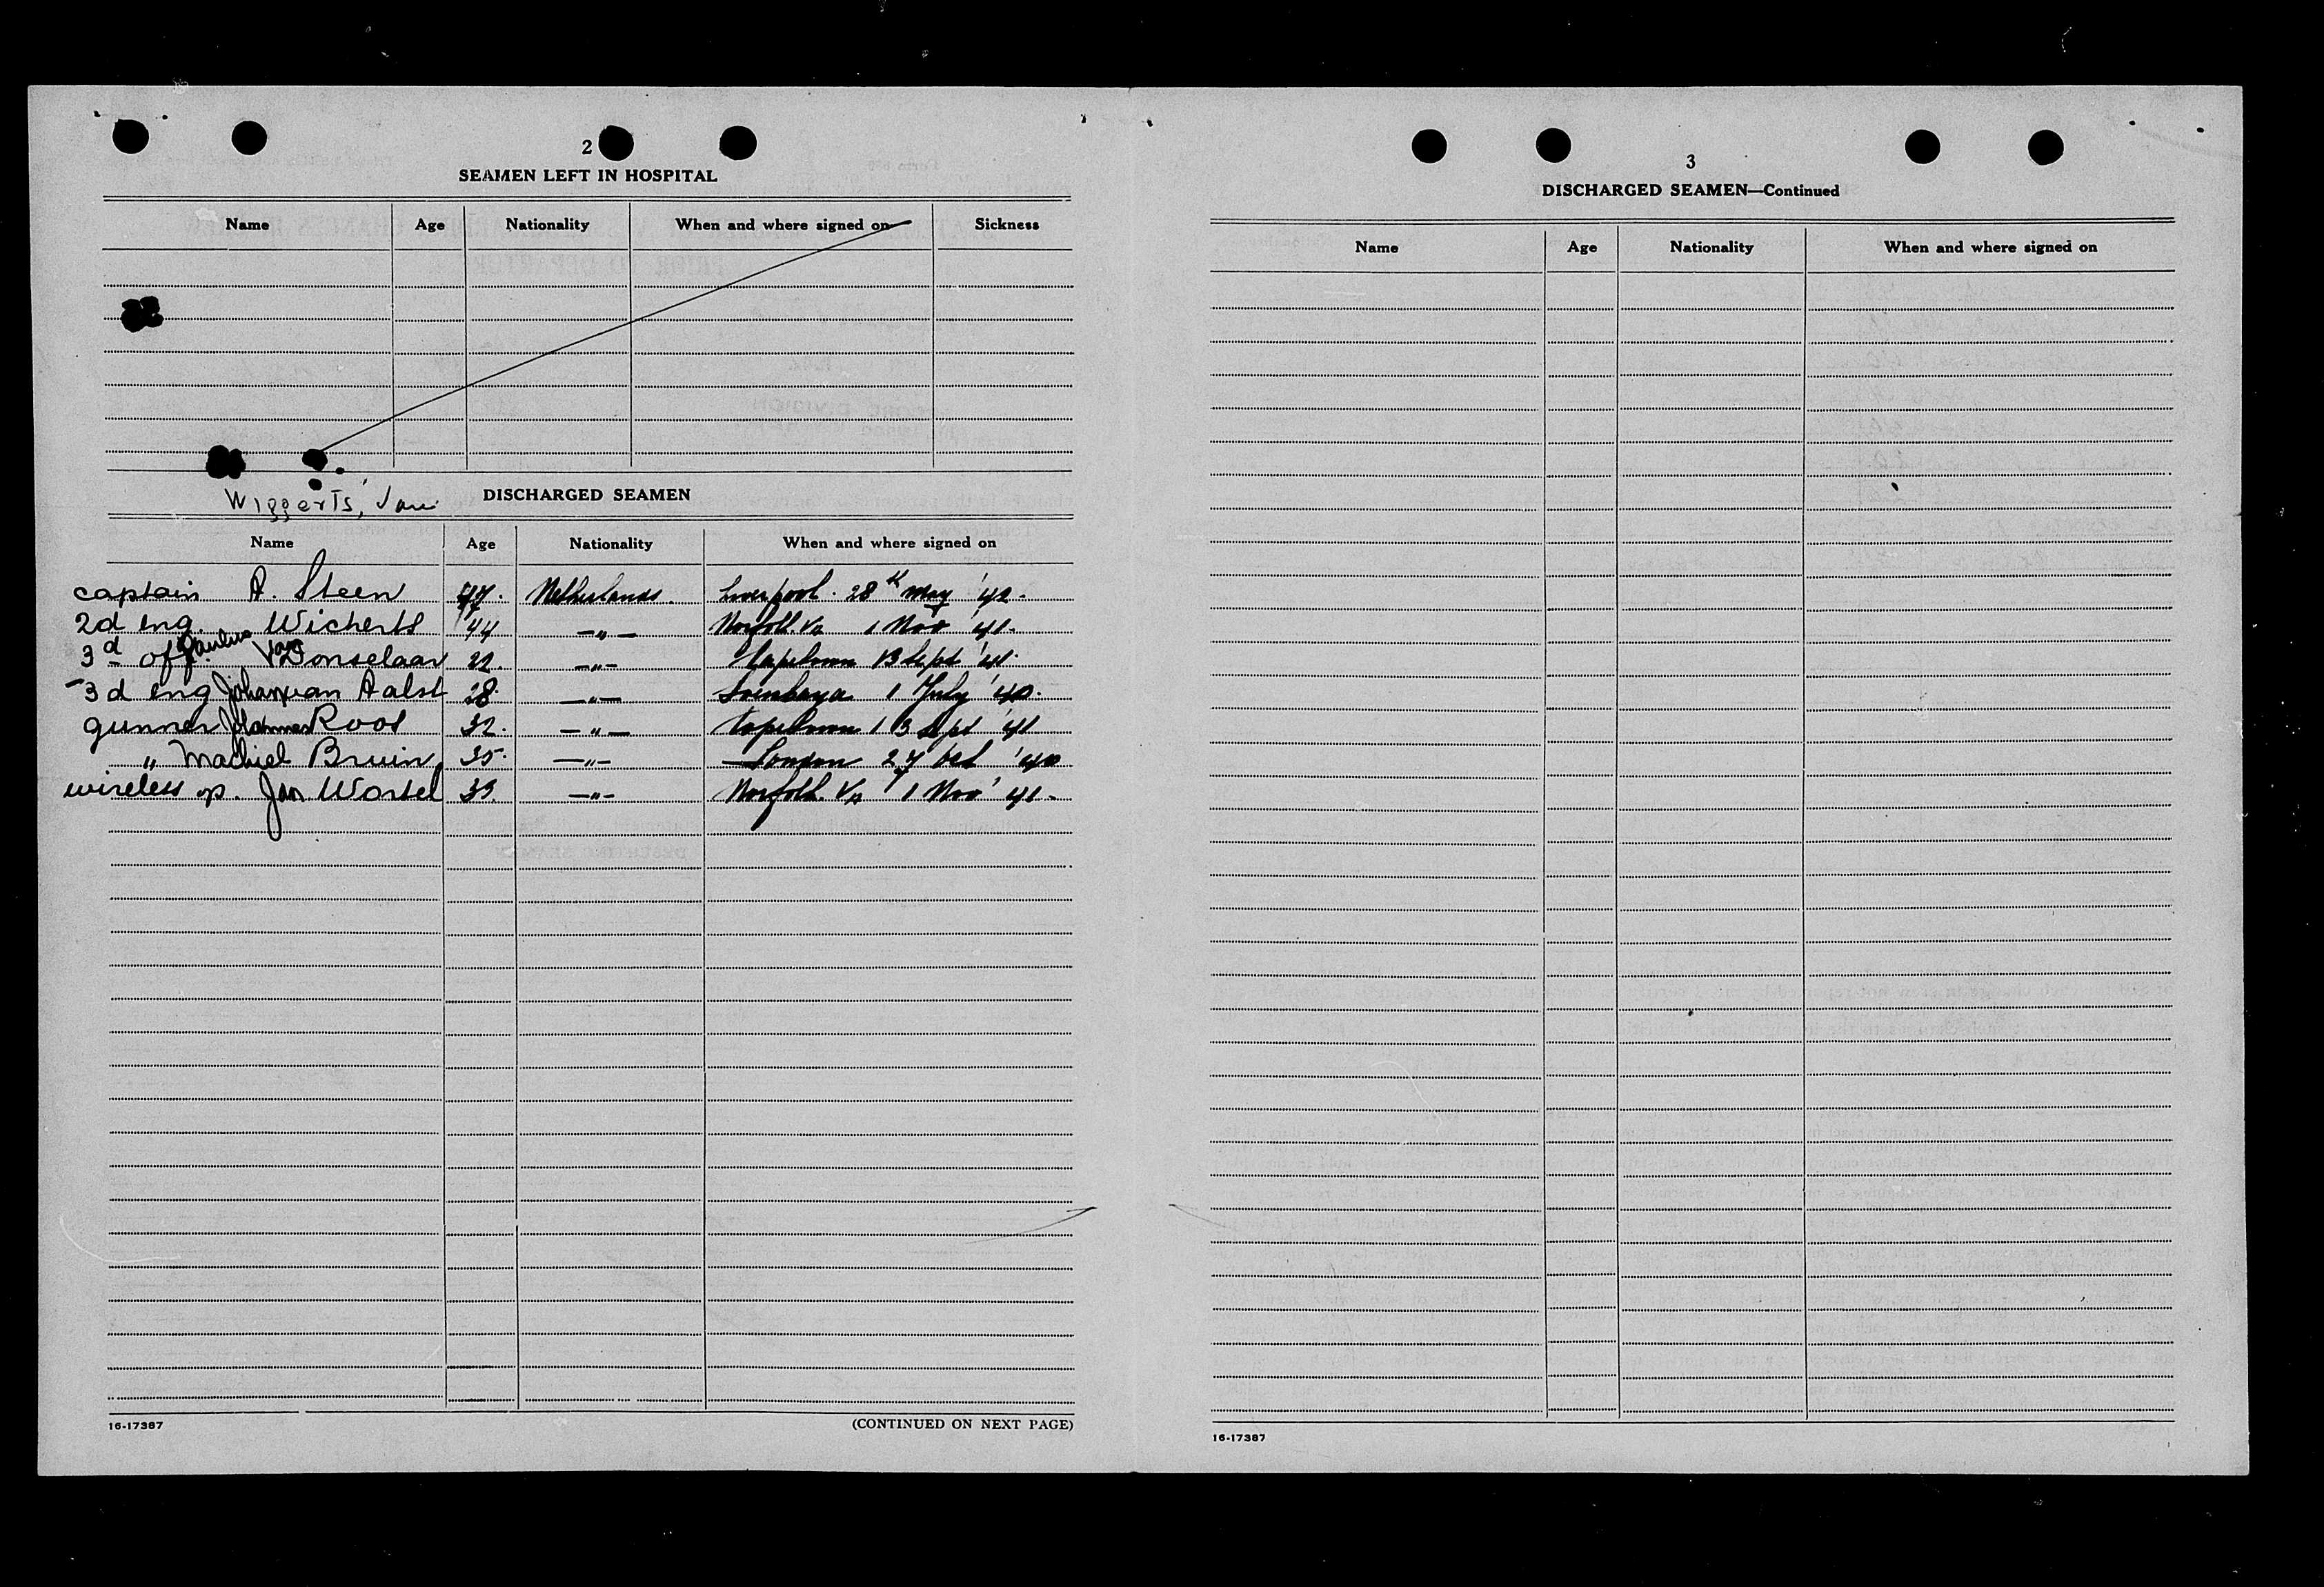 2
SEAMEN LEFT IN HOSPITAL
Name Age Nationality When and where signed on Sickness
Wiggerts, Jan
DISCHARGED SEAMEN
Name Age Nationality When and where signed on
captain A. Steen 47. Netherlands. Liverpool. 28th May '42.
2d eng. Wicherts 44 —〃— Norfolk. Va 1 Nov '41.
3d off. Paulus van Donselaar 22. —〃— Capetown 13 Sept '41.
3d eng Johan van Aalst 28. —〃— Soerabaya 1 July '40.
gunner Johannes Roos 32. —〃— Capetown 13 Sept '41
〃 Machiel Bruin 35. —〃— London 27 Oct '40
wireless op. Jan Wortel 33. —〃— Norfolk. Va 1 Nov '41.
16-17387
(CONTINUED ON NEXT PAGE)
3
DISCHARGED SEAMEN—Continued
Name Age Nationality When and where signed on
16-17387